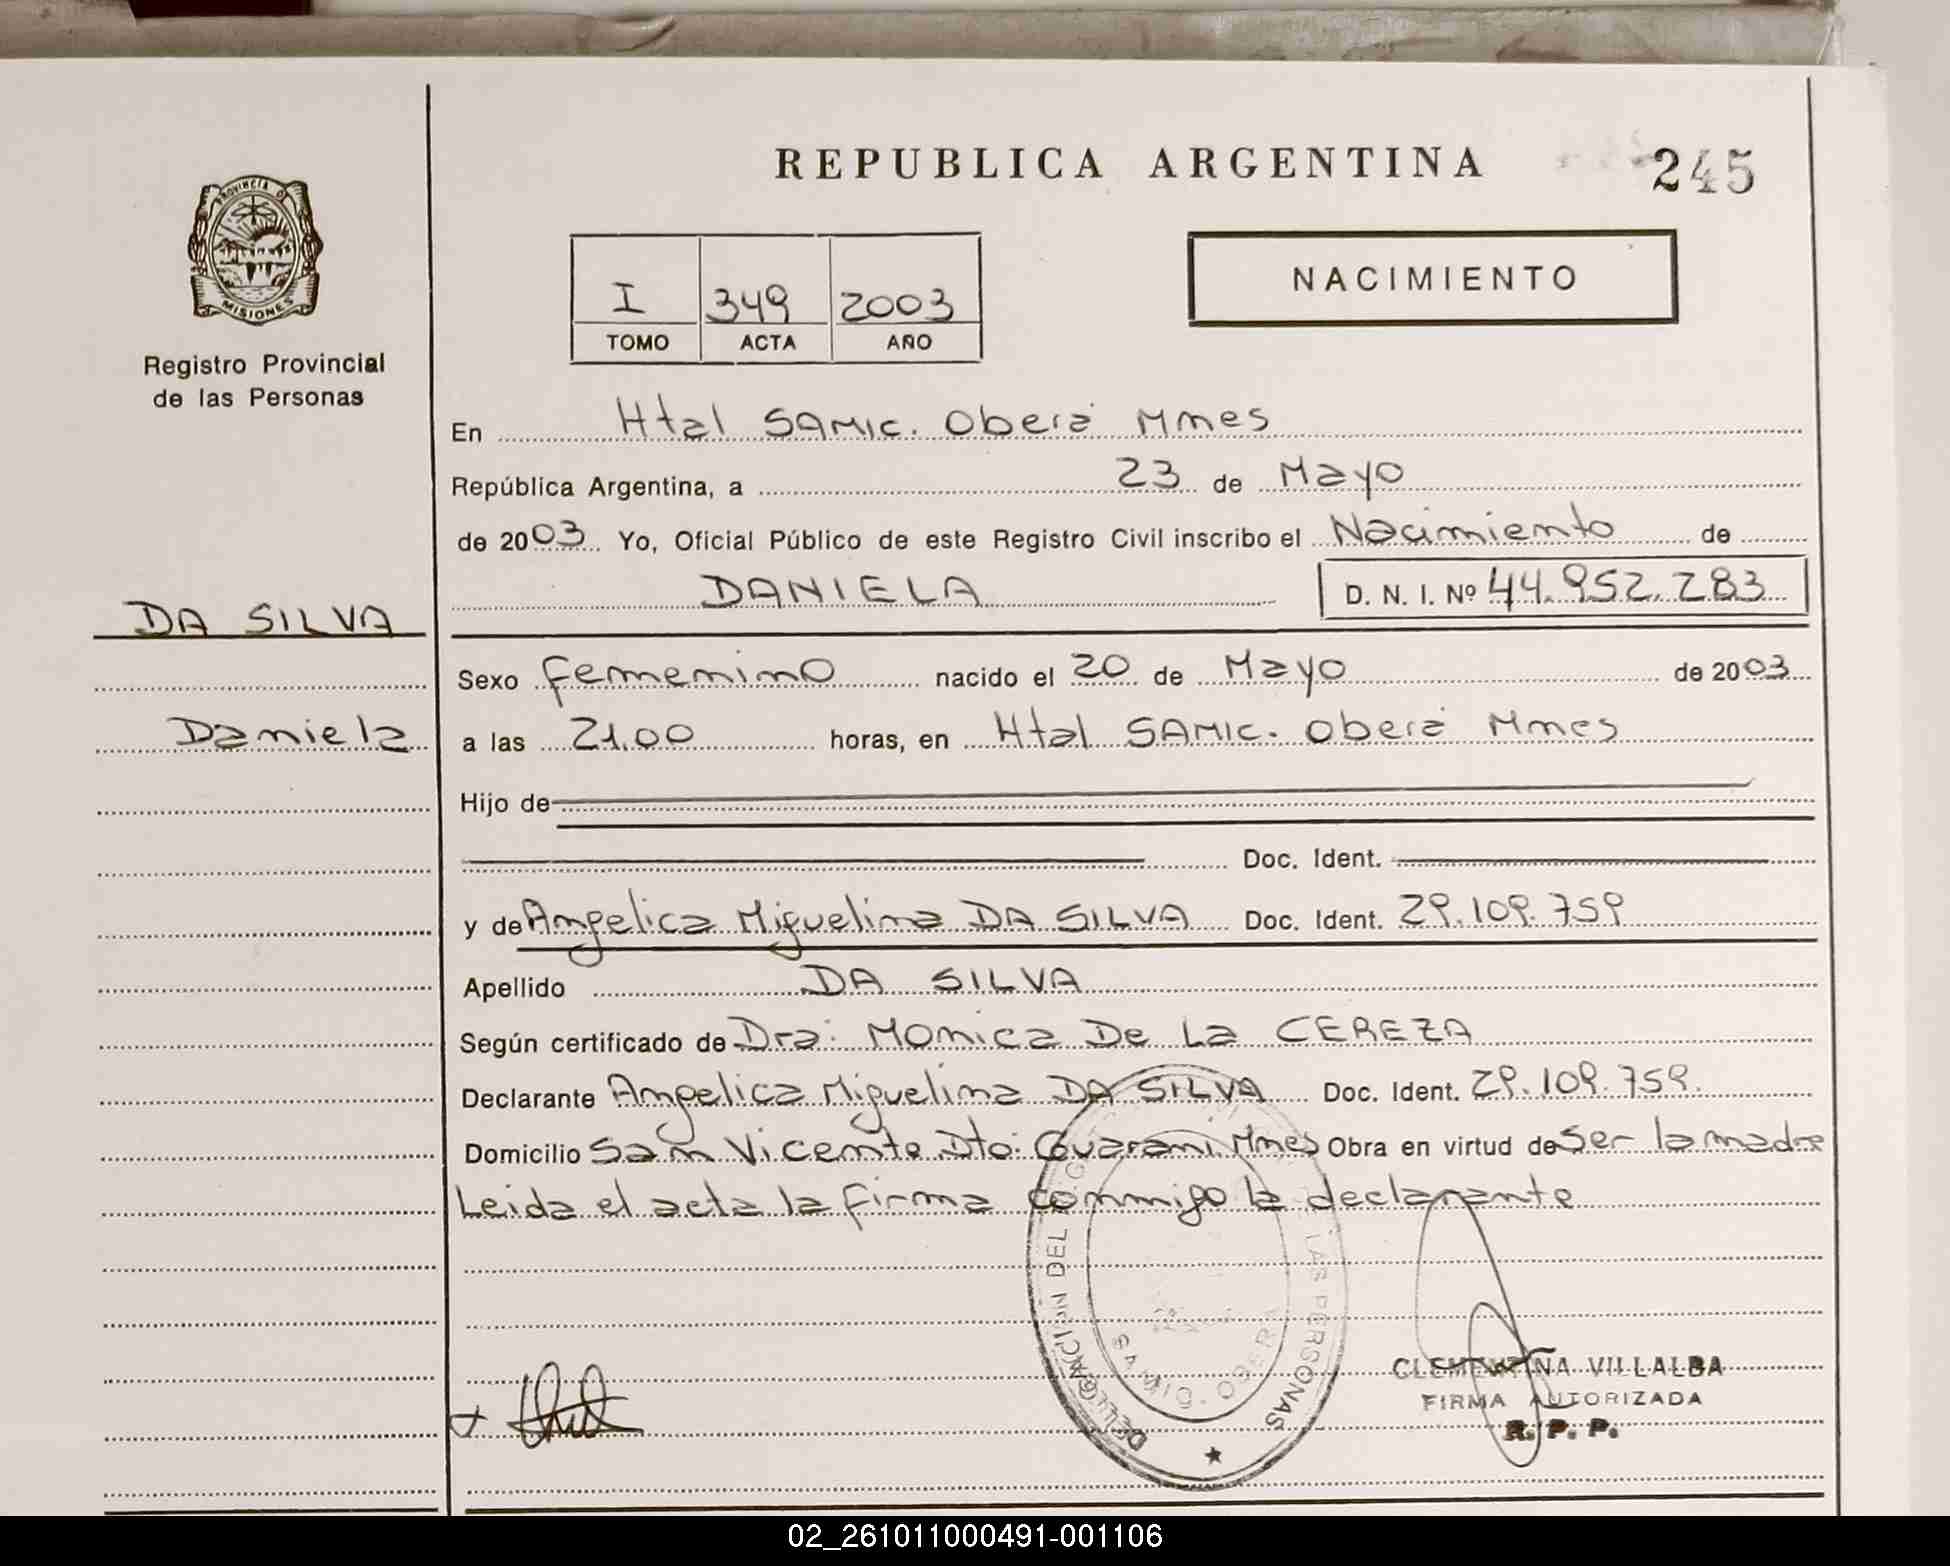 REPUBLICA ARGENTINA
245
PROVINCIA DE
MISIONES
Registro Provincial
de las Personas
NACIMIENTO
I 349 2003
TOMO ACTA AÑO
En Htal SAMIC. Oberá Mnes
República Argentina, a 23 de Mayo
de 2003 Yo, Oficial Público de este Registro Civil inscribo el Nacimiento de
DANIELA D. N. I. Nº 44.952.283
DA SILVA
Sexo femenino nacido el 20 de Mayo de 2003
Daniela
a las 21.00 horas, en Htal SAMIC. Oberá Mnes
Hijo de
Doc. Ident.
y de Angelica Miguelina DA SILVA Doc. Ident. 29.109.759
Apellido DA SILVA
Según certificado de Dra: Monica De La CEREZA
Declarante Angelica Miguelina DA SILVA Doc. Ident. 29.109.759.
Domicilio San Vicente Dto: Guarani Mnes Obra en virtud de Ser la madre
Leida el acta la firma conmigo la declarante
DELEGACIÓN DEL LAS PERSONAS
SAMIC. OBERA
CLEMENTINA VILLALBA
FIRMA AUTORIZADA
R. P. P.
02_261011000491-001106